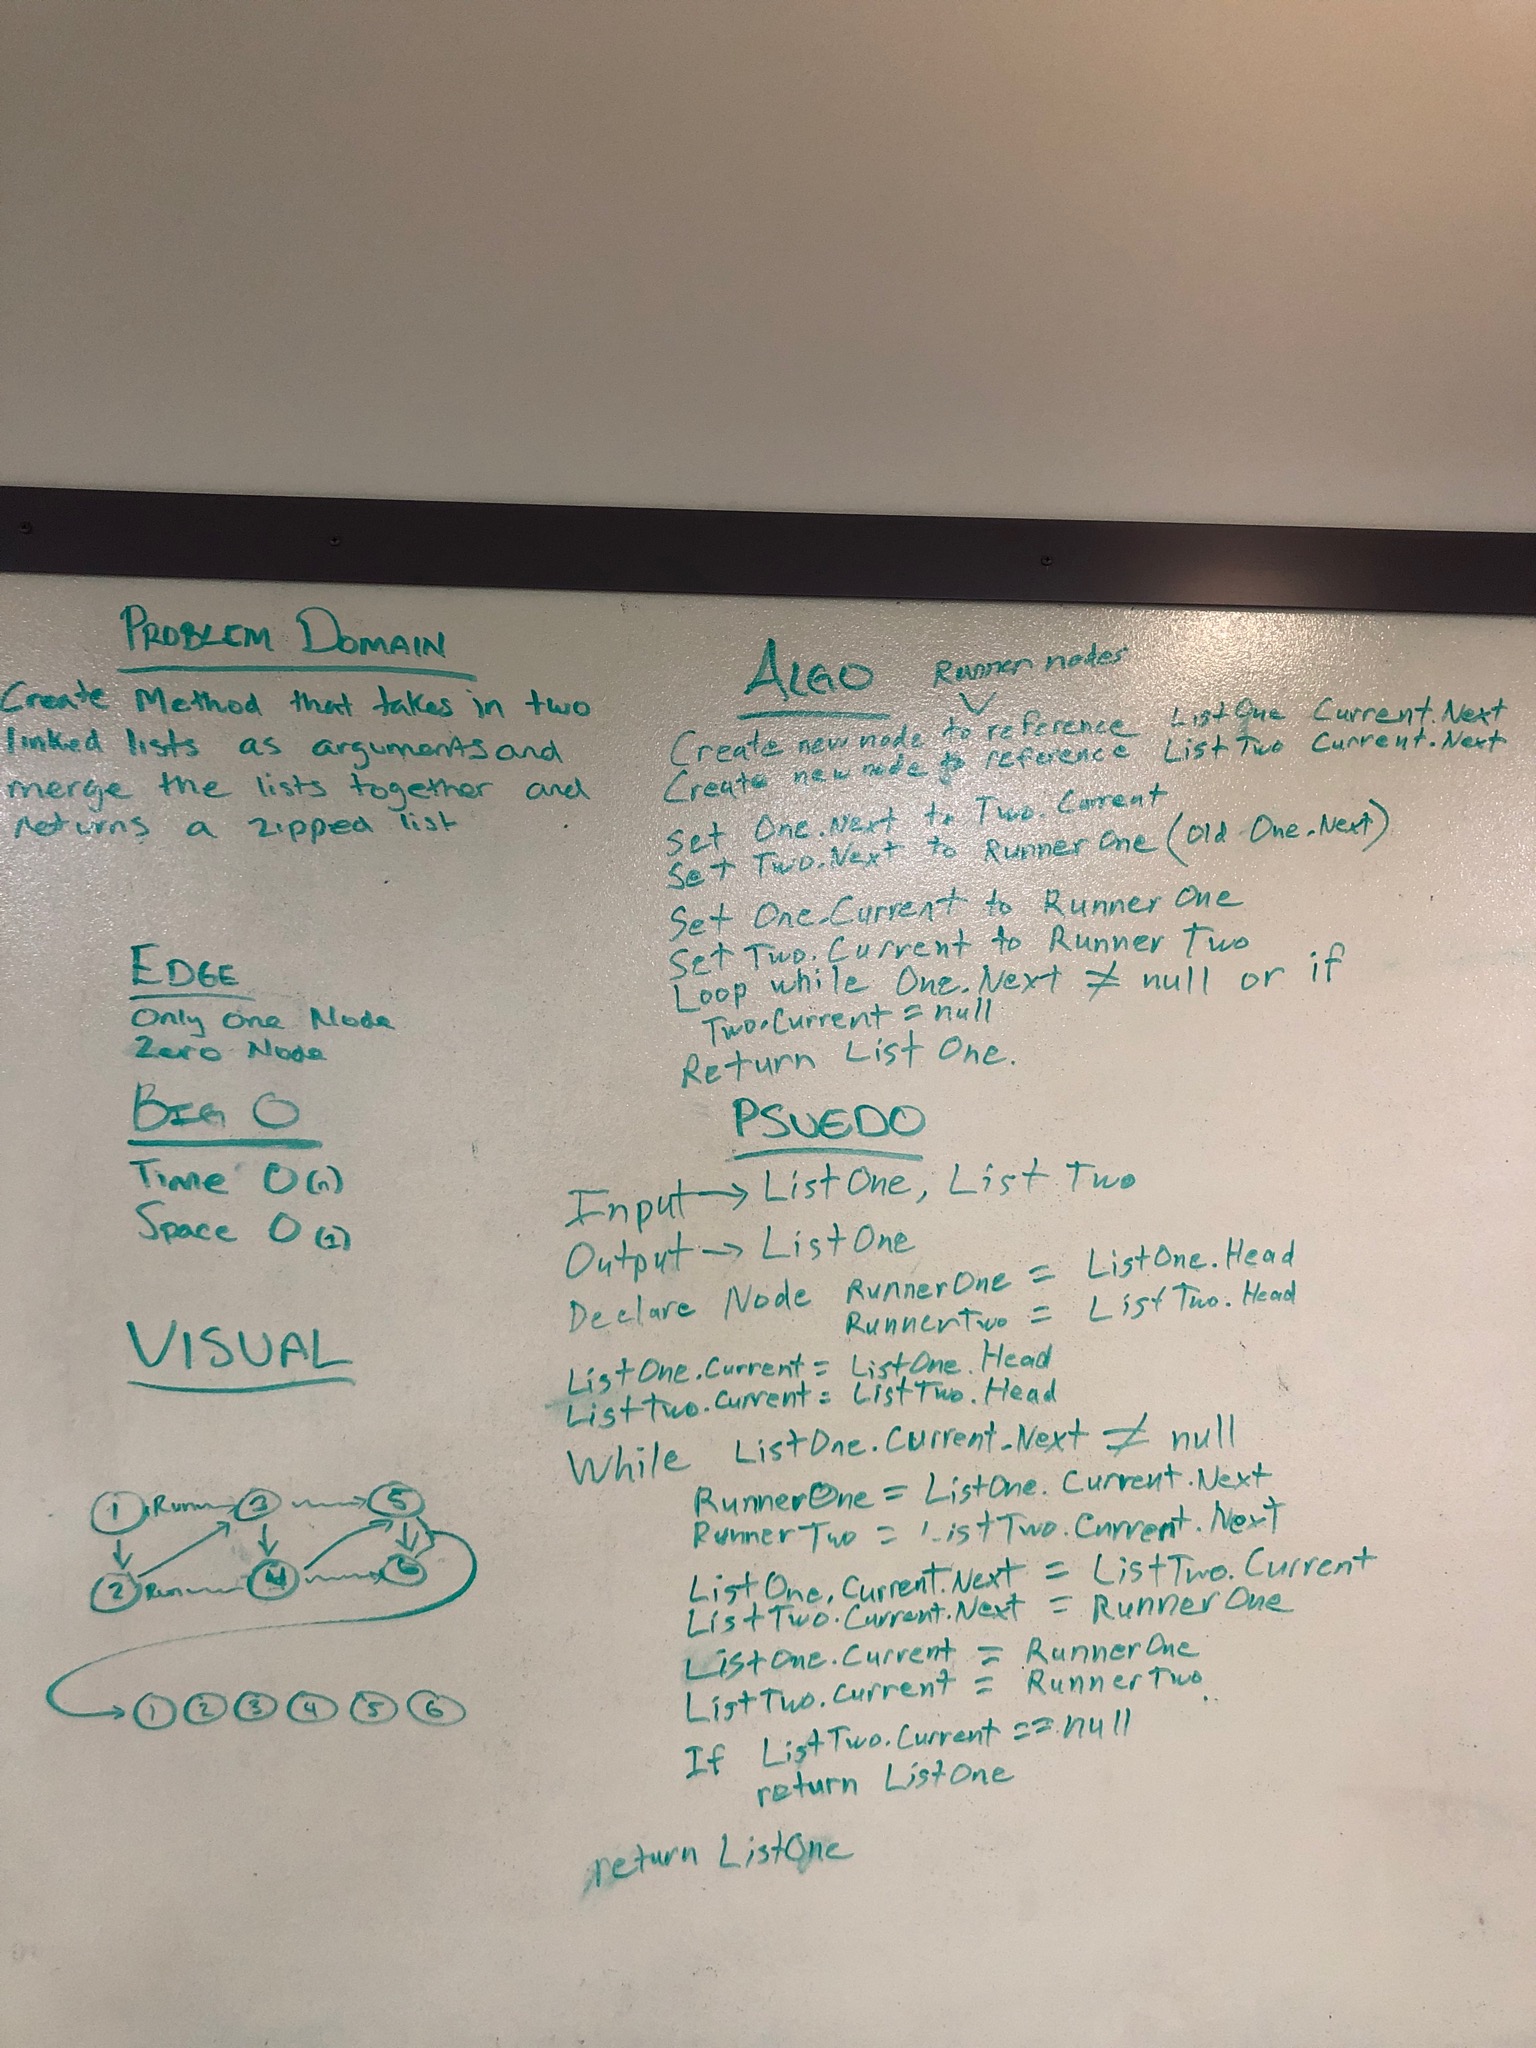 PROBLEM DOMAIN
Create Method that takes in two
linked lists as arguments and
merge the lists together and
returns a zipped list
EDGE
Only One Node
Zero Node
BIG O
Time O(n)
Space O(1)
VISUAL
1 Run 3 5
2 Run 4 6
1 2 3 4 5 6
ALGO Runner nodes
Create new node to reference ListOne Current.Next
Create new node to reference List Two Current.Next
Set One.Next to Two.Current
Set Two.Next to Runner One (Old One.Next)
Set One.Current to Runner One
Set Two.Current to Runner Two
Loop while One.Next ≠ null or if
Two.Current = null
Return List One.
PSUEDO
Input → ListOne, List Two
Output → ListOne
Declare Node RunnerOne = ListOne.Head
RunnerTwo = ListTwo.Head
ListOne.Current = ListOne.Head
ListTwo.Current = ListTwo.Head
While ListOne.Current.Next ≠ null
RunnerOne = ListOne.Current.Next
RunnerTwo = ListTwo.Current.Next
ListOne.Current.Next = ListTwo.Current
ListTwo.Current.Next = RunnerOne
ListOne.Current = RunnerOne
ListTwo.Current = RunnerTwo
If ListTwo.Current == null
return ListOne
return ListOne